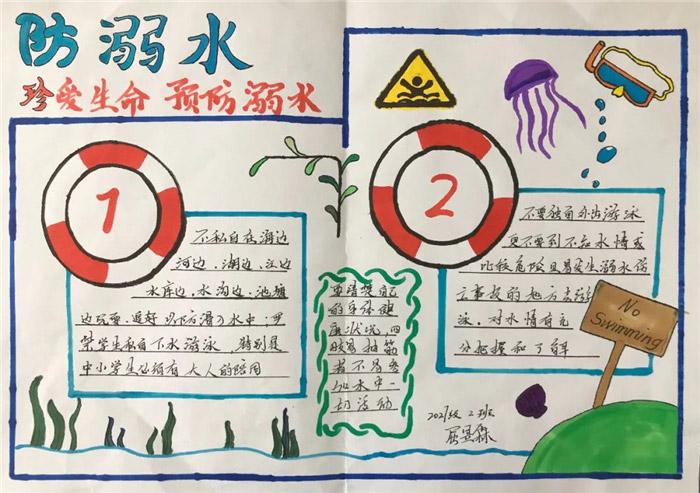 防溺水
珍爱生命 预防溺水
1
不私自在海边
河边、湖边、江边
水库边、水沟边、池塘
边玩耍、追赶 以防滑入水中；严
禁学生私自下水游泳，特别是
中小学生必须有大人的陪同
要清楚自己
的身体健
康状况，四
肢易抽筋
者不宜参
加水中一
切活动
2
不要独自外出游泳
更不要到不知水情或
比较危险且易发生溺水伤
亡事故的地方去游
泳。对水情有充
分把握和了解
No
Swimming
2021级 2班